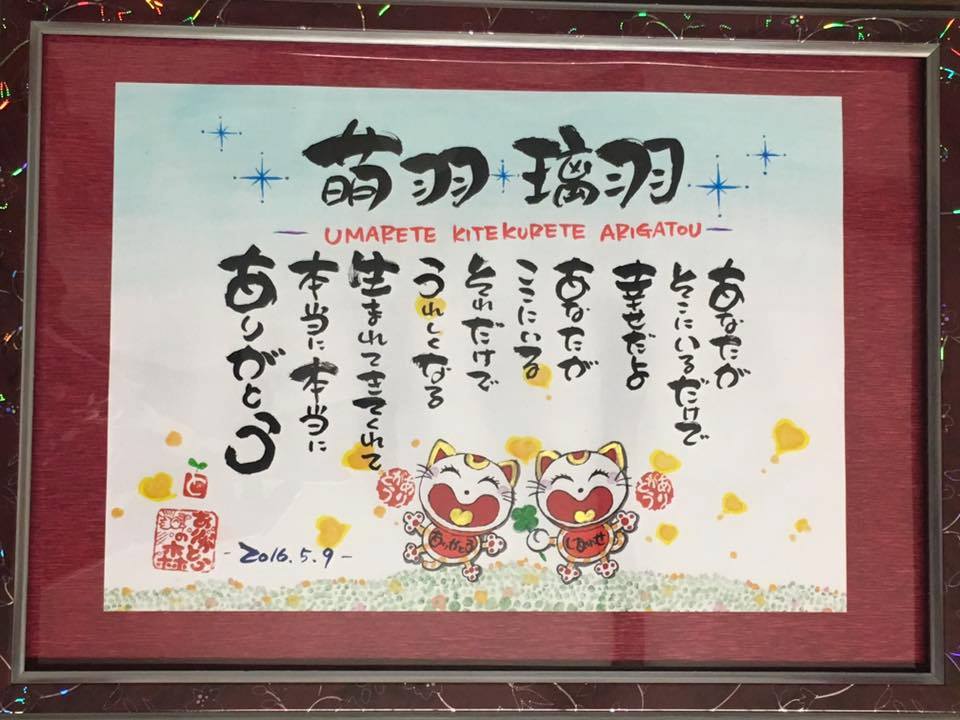 萌羽 璃羽
UMARETE KITEKURETE ARIGATOU
あなたが
そこにいるだけで
幸せだよ
あなたが
ここにいる
それだけで
うれしくなる
生まれてきてくれて
本当に本当に
ありがとう
ありがとう
ありがとう
しあわせ
ありがとう
2016.5.9